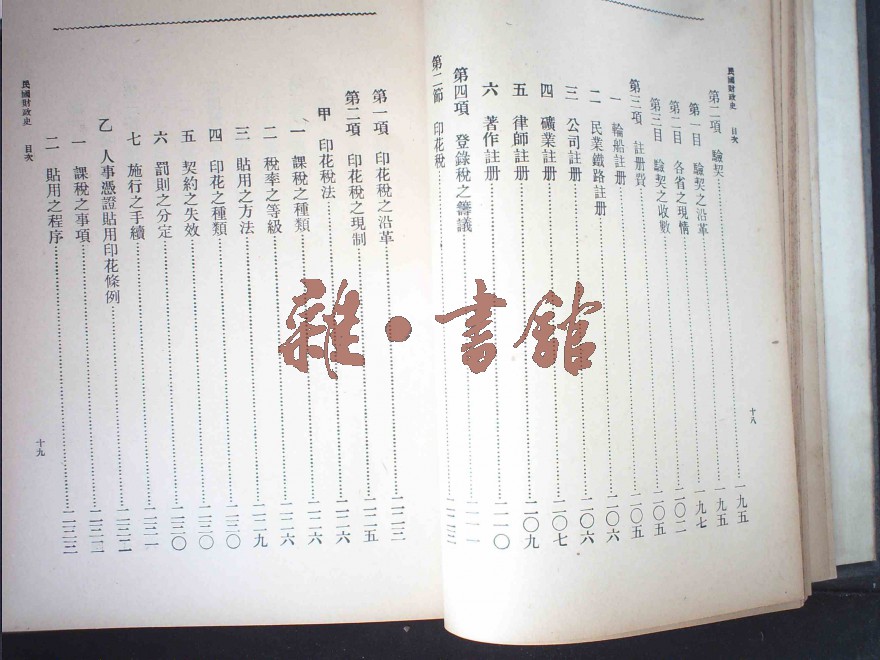 民國財政史 目次
第二項 驗契 一九五
第一目 驗契之沿革 一九五
第二目 各省之現情 一九七
第三目 驗契之收數 二〇二
第三項 註冊費 二〇五
一 輪船註册 二〇五
二 民業鐵路註册 二〇六
三 公司註册 二〇六
四 礦業註册 二〇七
五 律師註册 二〇九
六 著作註册 二一〇
第四項 登錄稅之籌議 二一一
第二節 印花稅 二二三
十八
民國財政史 目次
第一項 印花稅之沿革 二二三
第二項 印花稅之現制 二二五
甲 印花稅法 二二六
一 課稅之種類 二二六
二 稅率之等級 二二六
三 貼用之方法 二二九
四 印花之種類 二三〇
五 契約之失效 二三〇
六 罰則之分定 二三〇
七 施行之手續 二三一
乙 人事憑證貼用印花條例 二三二
一 課稅之事項 二三二
二 貼用之程序 二三三
十九
雜·書館